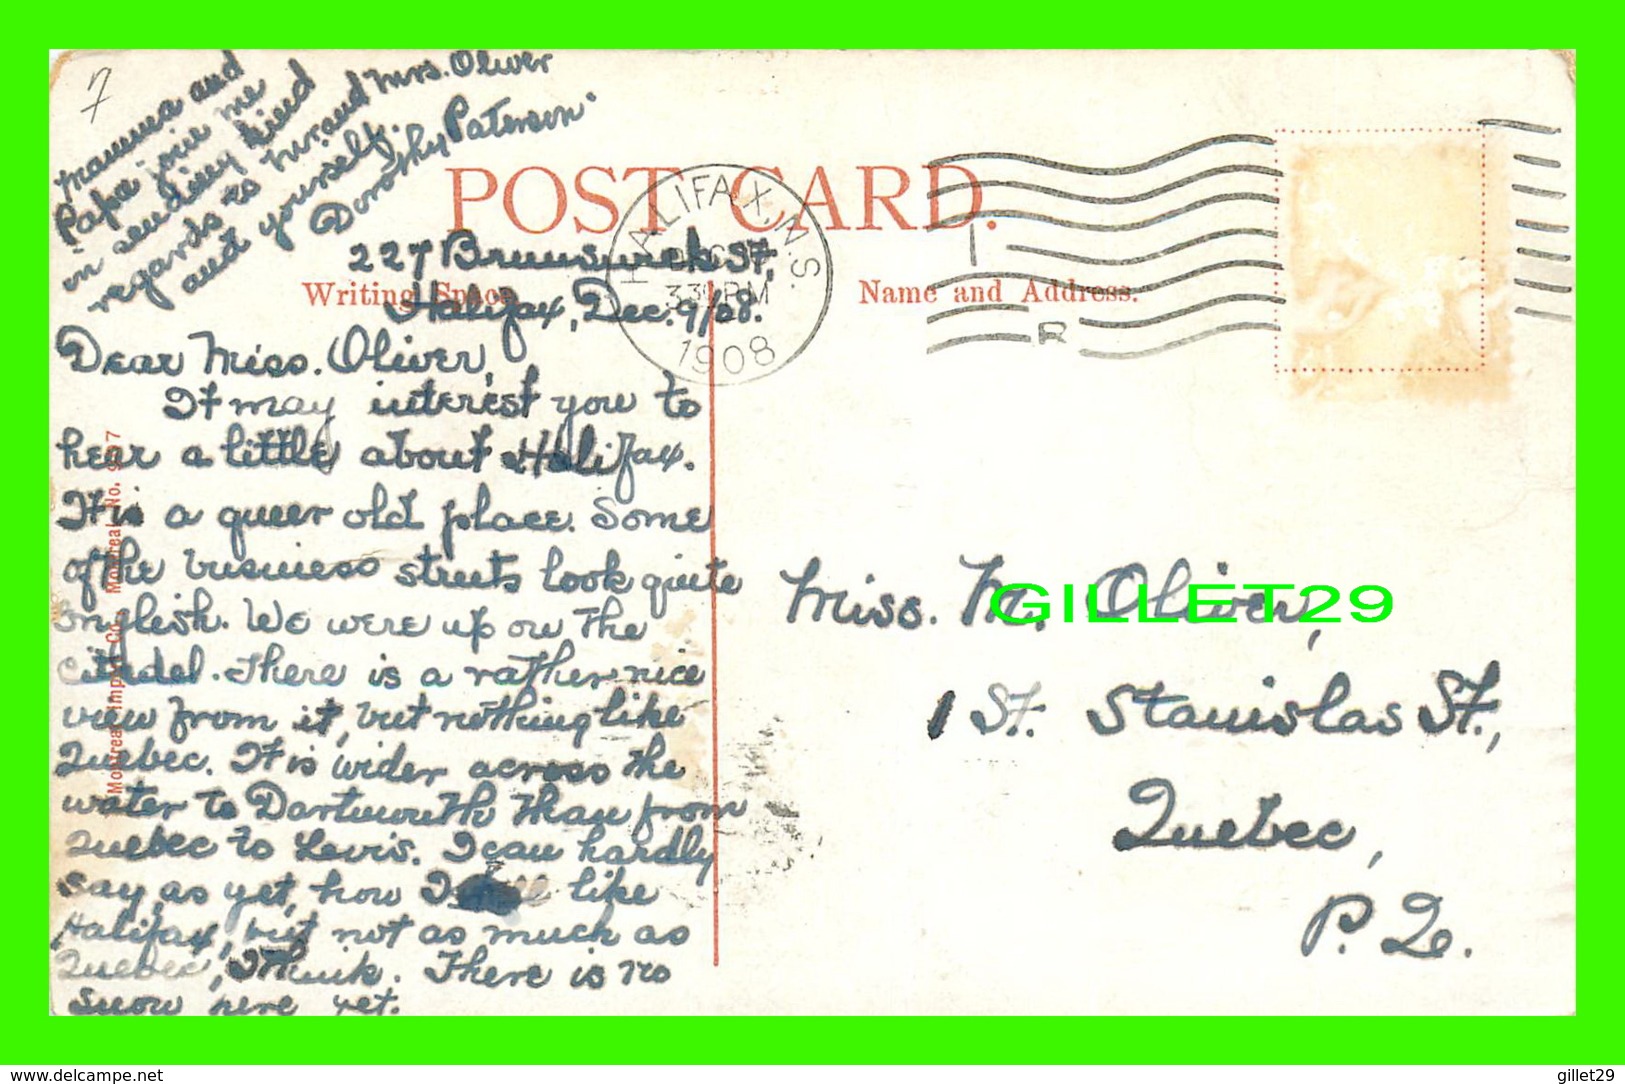 7
Mamma and
Papa join me
in sending kind
regards to Mr. and Mrs. Oliver
and yourself.
Dorothy Paterson.
POST CARD.
HALIFAX, N.S.
330 PM
1908
R
227 Brunswick St,
Writing Space.
Name and Address.
Halifax, Dec. 9/08.
Dear Miss. Oliver,
It may interest you to
hear a little about Halifax.
It is a queer old place. Some
of the business streets look quite
English. We were up on the
Citadel. There is a rather nice
view from it, but nothing like
Quebec. It is wider across the
water to Dartmouth than from
Quebec to Levis. I can hardly
say, as yet, how I like
Halifax, but not as much as
Quebec, I think. There is no
snow here yet.
Montreal Import Co. Montreal No.
Miss. M. Oliver,
GILLET29
1 St. Stanislas St.,
Quebec,
P. Q.
www.delcampe.net
gillet29